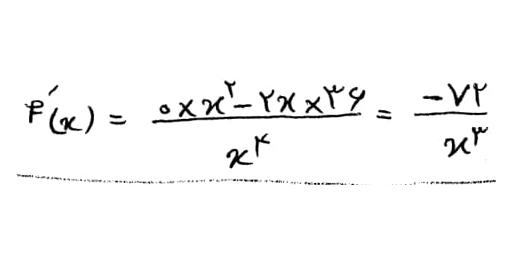 f′(x) = (۰×x^۲ − ۲x×۳۶) / x^۴ = −۷۲ / x^۳